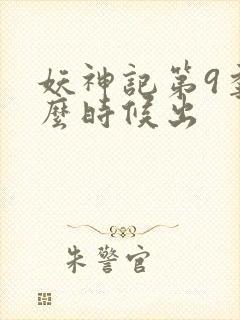 妖神記第9季什
麼時候出
朱警官